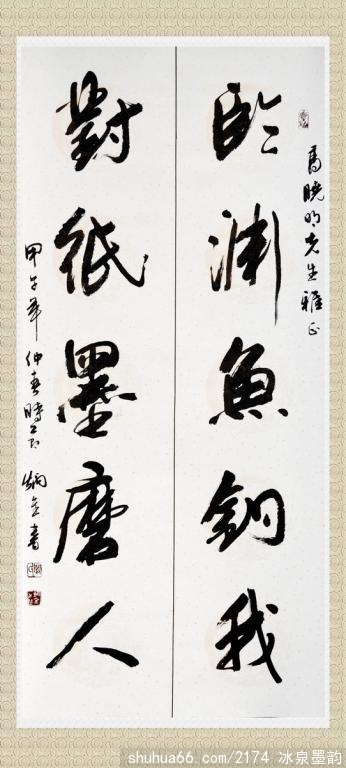 馬曉明先生雅正
臨淵魚釣我
對紙墨磨人
甲午年仲春時節炳金書
shuhua66.com/2174 冰泉墨韵